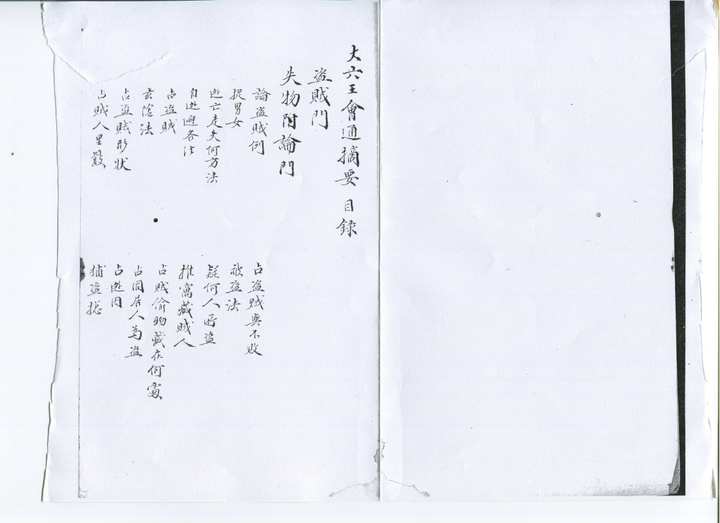 大六壬會通摘要 目錄
盜賊門
失物附論門
論盜賊例
捉男女
逃亡走失何方法
自逃迴各法
占盜賊
玄陰法
占盜賊形狀
占賊人里數
占盜賊與不敗
被盜法
疑何人所盜
推窩藏賊人
占賊偷物藏在何處
占同居人為盜
占逃
捕盜